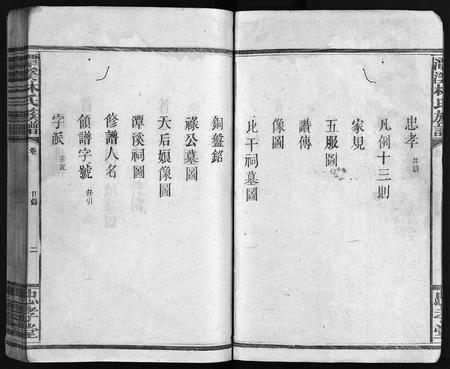 忠孝 并讚
凡例十三則
家規
五服圖
讚傳
像圖
比干祠墓圖
銅盤銘
祿公墓圖
天后娘像圖
潭溪祠圖
修譜人名
領譜字號 并引
字派 并記
潭溪林氏族譜
卷
目錄
二
忠孝堂
潭溪林氏族譜
忠孝堂